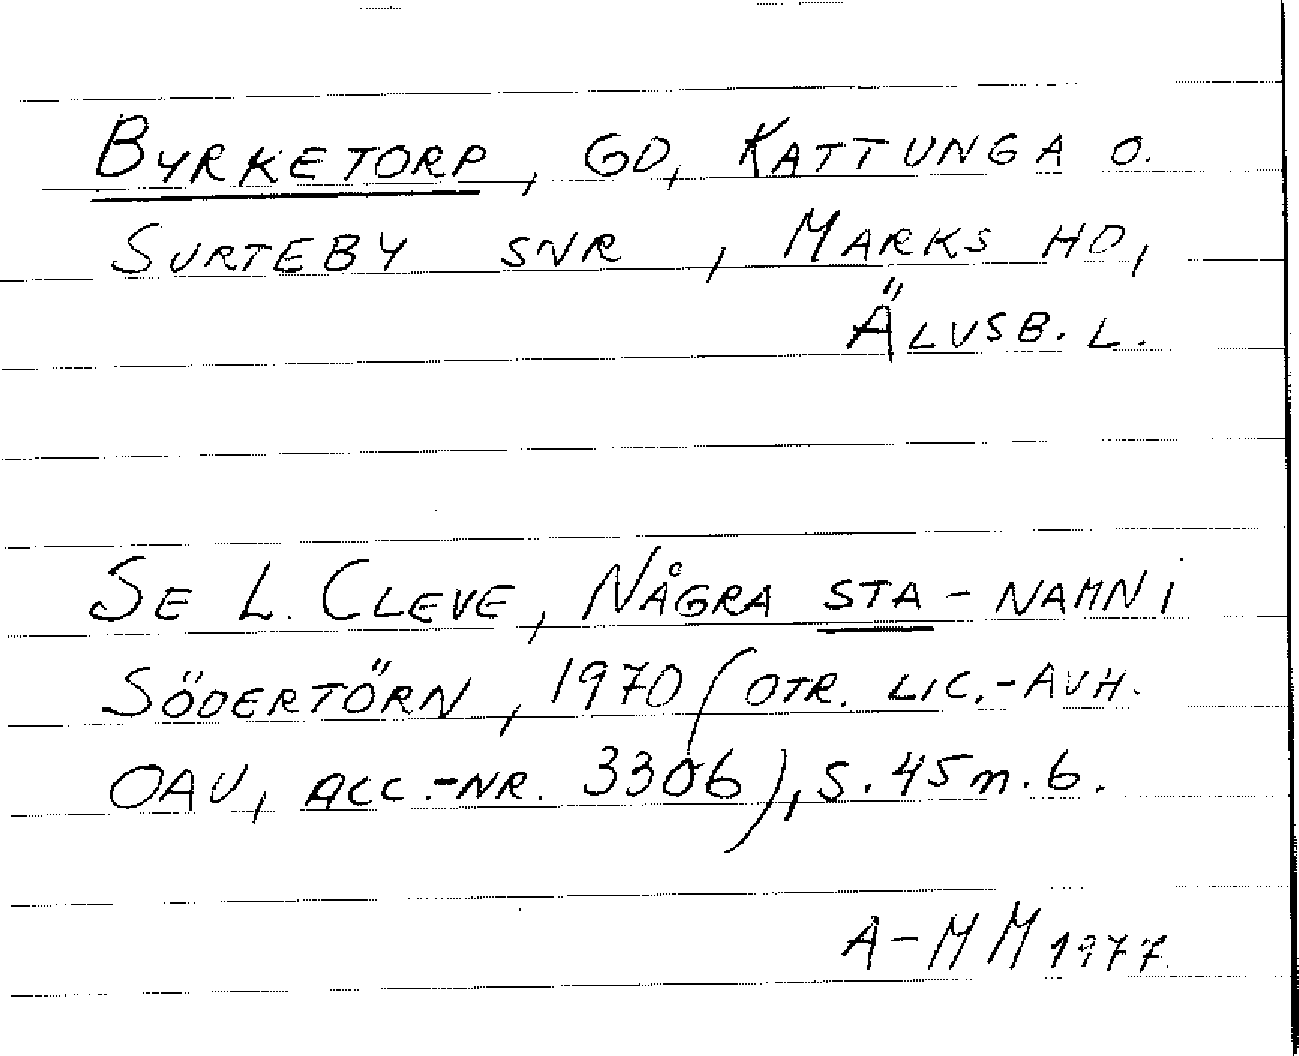 BYRKETORP, GD, KATTUNGA O.
SURTEBY SNR, MARKS HD,
ÄLVSB. L.
SE L. CLEVE, NÅGRA STA-NAMN I
SÖDERTÖRN, 1970 (OTR. LIC.-AVH.
OAU, ACC.-NR. 3306), S. 45 n. 6.
A-MM 1977